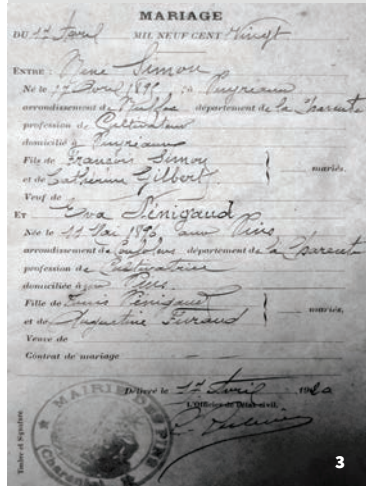 MARIAGE
DU 17 Avril MIL NEUF CENT Vingt
ENTRE : René Simon
Né le 17 Avril 189 à Puyréaux
arrondissement de Ruffec département de la Charente
profession de Cultivateur
domicilié à Puyréaux
Fils de François Simon
et de Catherine Gilbert } mariés.
Veuf de
ET Eva Pénigaud
Née le 11 Mai 1896 aux Pins
arrondissement de Confolens département de la Charente
profession de Cultivatrice
domiciliée aux Pins
Fille de Louis Pénigaud
et de Augustine Furaud } mariés,
Veuve de
Contrat de mariage
Délivré le 17 Avril 1920
L'Officier de l'état-civil,
MAIRIE DES PINS
Charente
Timbre et Signature
3